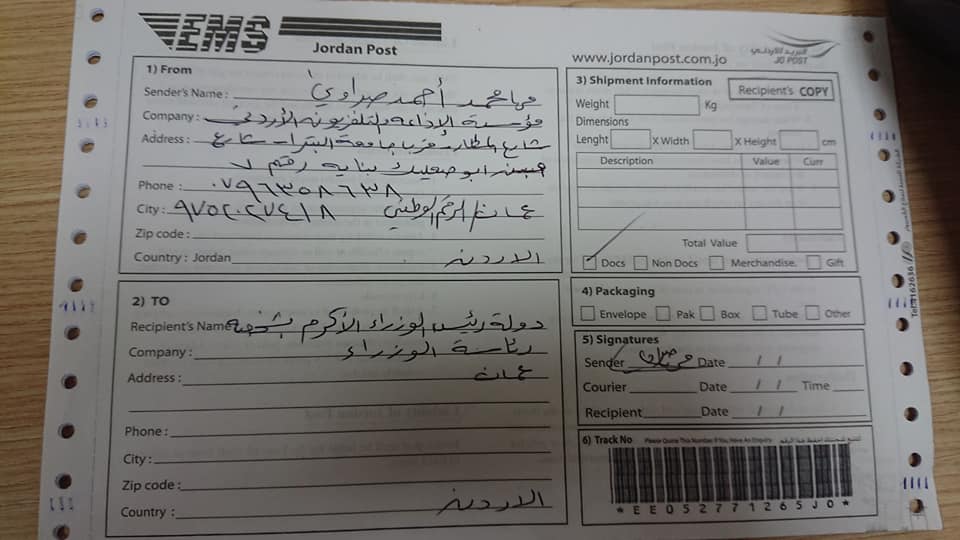 EMS
Jordan Post
www.jordanpost.com.jo
البريد الأردني
JO POST
1) From
Sender's Name : مها محمد أحمد صراوي
Company : مؤسسة الإذاعة والتلفزيون الأردني
Address : شارع المطار - قرب جامعة البترا - شارع
ابو صعيليك بناية رقم ٧
Phone : ٠٧٩٦٣٥٨٦٣٨
City : عمان / الرقم الوطني ٩٧٥٢٠٢٧٤١٨
Zip code :
Country : Jordan الاردن
2) TO
Recipient's Name دولة رئيس الوزراء الأكرم بشخصه
Company : رئاسة الوزراء
Address : عمان
Phone :
City :
Zip code :
Country : الاردن
3) Shipment Information
Recipient's COPY
Weight Kg
Dimensions
Lenght X Width X Height cm
Description Value Curr
Total Value
Docs Non Docs Merchandise. Gift
4) Packaging
Envelope Pak Box Tube Other
5) Signatures
Sender Date / /
Courier Date / / Time
Recipient Date / /
6) Track No Please Quote This Number If You Have An Enquiry
*EE052771265JO*